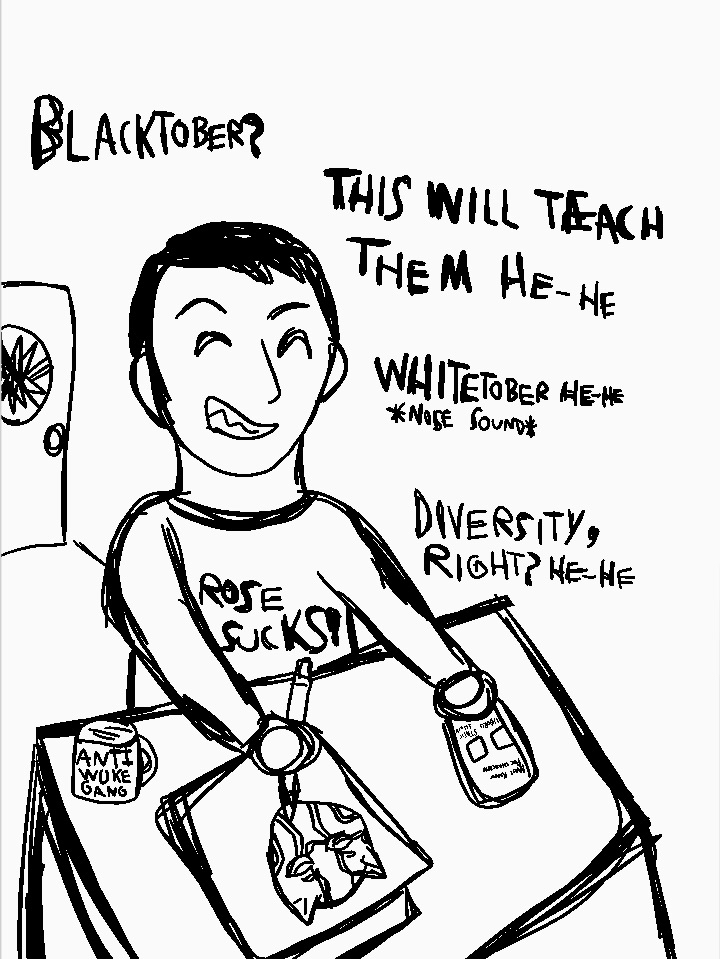 BLACKTOBER?
THIS WILL TEACH
THEM HE-HE
WHITETOBER HE-HE
*NOSE SOUND*
DIVERSITY,
RIGHT? HE-HE
ROSE
SUCKS!
ANTI
WOKE
GANG